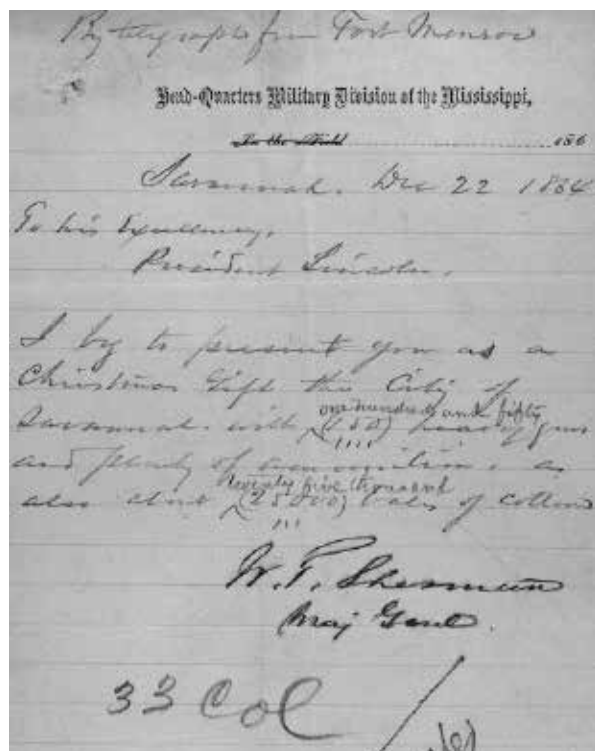 By telegraph from Fort Monroe
Head-Quarters Military Division of the Mississippi,
In the Field 186
Savannah. Dec 22 1864
To his Excellency,
President Lincoln.
I beg to present you as a
Christmas Gift the City of
one hundred and fifty
Savannah. with (150) heavy guns
and plenty of ammunition. as
twenty five thousand
also about (25000) bales of cotton
W. T. Sherman
Maj Genl.
33 Col